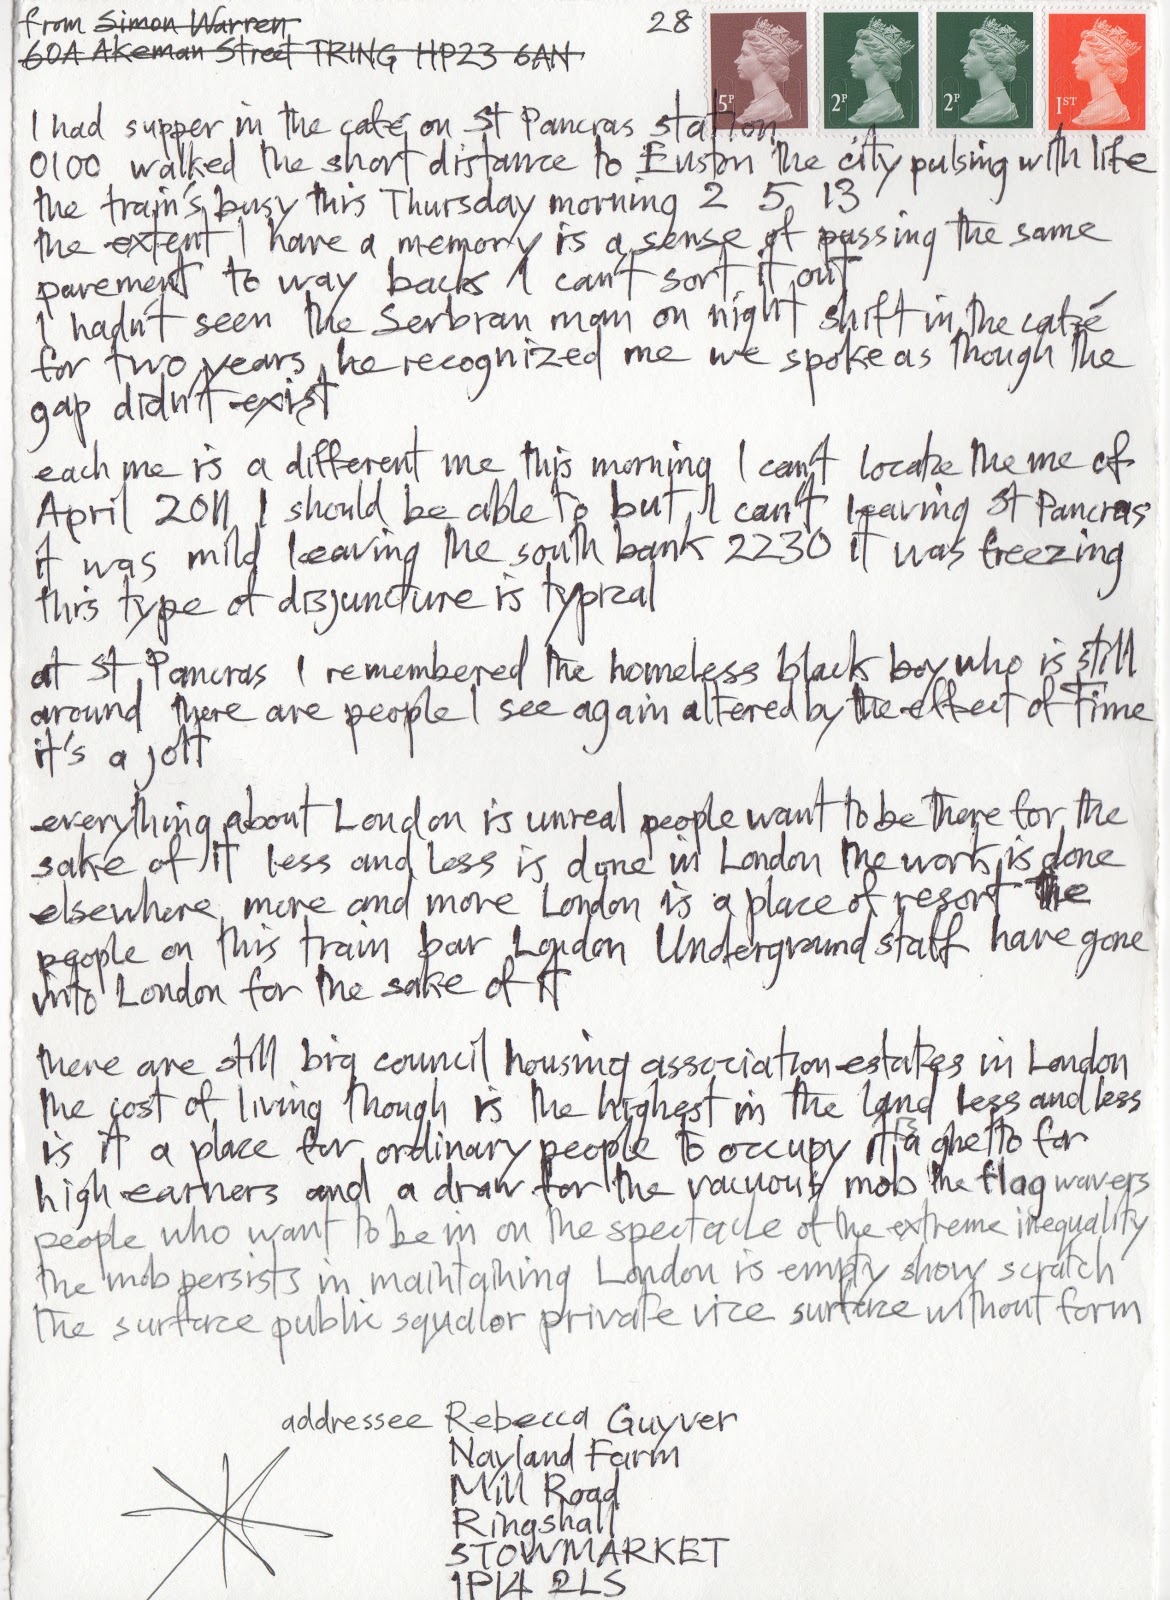 from Simon Warren 28
60A Akeman Street TRING HP23 6AN
5P 2P 2P 1ST
I had supper in the café on St Pancras station
0100 walked the short distance to Euston the city pulsing with life
the train's busy this Thursday morning 2 5 13
the extent I have a memory is a sense of passing the same
pavement to way backs I can't sort it out
I hadn't seen the Serbian man on night shift in the café
for two years he recognized me we spoke as though the
gap didn't exist
each me is a different me this morning I can't locate the me of
April 2011 I should be able to but I can't leaving St Pancras
it was mild leaving the south bank 2230 it was freezing
this type of disjuncture is typical
at St Pancras I remembered the homeless black boy who is still
around there are people I see again altered by the effect of Time
it's a jolt
everything about London is unreal people want to be there for the
sake of it less and less is done in London the work is done
elsewhere more and more London is a place of resort the
people on this train bar London Underground staff have gone
into London for the sake of it
there are still big council housing association estates in London
the cost of living though is the highest in the land less and less
is it a place for ordinary people to occupy it's a ghetto for
high earners and a draw for the vacuous mob the flag wavers
people who want to be in on the spectacle of the extreme inequality
the mob persists in maintaining London is empty show scratch
the surface public squalor private vice surface without form
addressee Rebecca Guyver
Nayland Farm
Mill Road
Ringshall
STOWMARKET
IP14 2LS